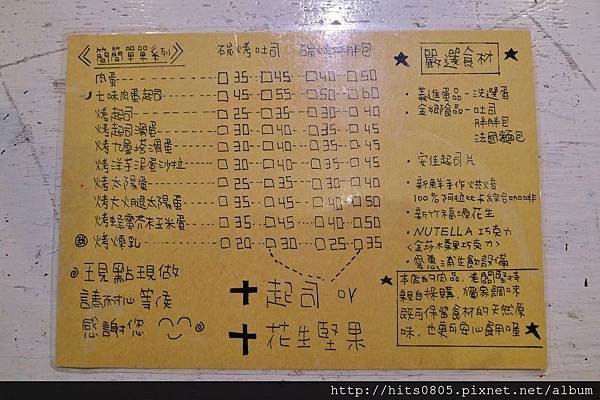 《簡簡單單系列》 碳烤吐司 碳烤胖胖包
肉蛋 □35 □45 □40 □50
七味肉蛋起司 □45 □55 □50 □60
烤起司 □25 □35 □30 □40
烤起司滑蛋 □30 □40 □35 □45
烤九層塔滑蛋 □30 □40 □35 □45
烤洋芋泥蛋沙拉 □35 □45 □40 □50
烤太陽蛋 □25 □35 □30 □40
烤大火腿太陽蛋 □35 □45 □40 □50
烤蜂蜜芥末玉米蛋 □30 □40 □35 □45
烤煉乳 □20 □30 □25 □35
現點現做
請耐心等候
感謝您
+起司 or
+花生堅果
嚴選食材
・義進蛋品-洗選蛋
・金緗食品-吐司
胖胖包
法國麵包
・安佳起司片
・新鮮手作烘焙
100%阿拉比卡綜合咖啡
・新竹福源花生
・NUTELLA 巧克力
<金莎榛果巧克力>
・愛惠浦生飲設備
本店的肉品,老闆堅持
親自採購,獨家調味
既可保留食材的天然原
味,也更可安心食用喔
http://hits0805.pixnet.net/album